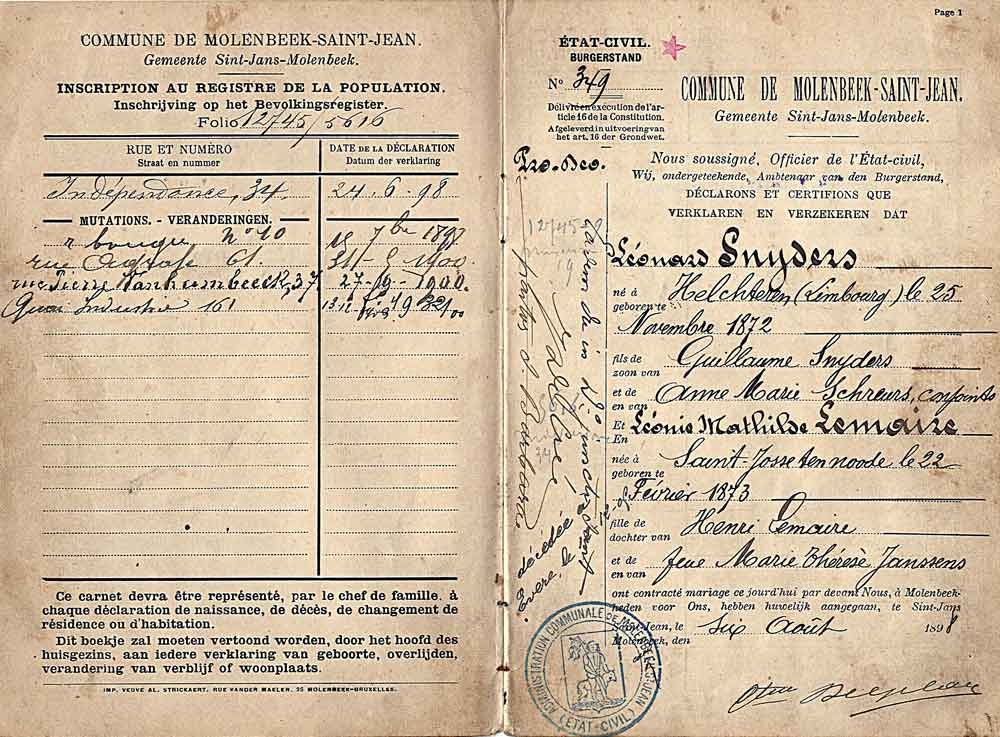 COMMUNE DE MOLENBEEK-SAINT-JEAN.
Gemeente Sint-Jans-Molenbeek.
INSCRIPTION AU REGISTRE DE LA POPULATION.
Inschrijving op het Bevolkingsregister.
Folio 12745/5616
RUE ET NUMÉRO
Straat en nummer
DATE DE LA DÉCLARATION
Datum der verklaring
Indépendance, 34. 24.6.98
MUTATIONS. - VERANDERINGEN.
r No 10 15 7bre
rue 61.
rue Pierre Vanhumbeeck, 37. 27-9-1900.
Quai Industrie 161
Ce carnet devra être représenté, par le chef de famille, à
chaque déclaration de naissance, de décès, de changement de
résidence ou d'habitation.
Dit boekje zal moeten vertoond worden, door het hoofd des
huisgezins, aan iedere verklaring van geboorte, overlijden,
verandering van verblijf of woonplaats.
IMP. VEUVE AL. STRICKAERT, RUE VANDER MAELEN, 25 MOLENBEEK-BRUXELLES.
Page 1
ÉTAT-CIVIL.
BURGERSTAND
No 349
Délivré en exécution de l'ar-
ticle 16 de la Constitution.
Afgeleverd in uitvoering van
het art. 16 der Grondwet.
Pro-Deo.
COMMUNE DE MOLENBEEK-SAINT-JEAN.
Gemeente Sint-Jans-Molenbeek.
Nous soussigné, Officier de l'État-civil,
Wij, ondergeteekende, Ambtenaar van den Burgerstand,
DÉCLARONS ET CERTIFIONS QUE
VERKLAREN EN VERZEKEREN DAT
Léonard Snyders
né à
geboren te
Helchteren (Limbourg) le 25
Novembre 1872
fils de
zoon van
Guillaume Snyders
et de
en van
Anne Marie Schreurs, conjoints
Et
En
Léonie Mathilde Lemaire
née à
geboren te
Saint-Josse ten noode, le 22
Février 1873
fille de
dochter van
Henri Lemaire
et de
en van
feue Marie Thérèse Janssens
ont contracté mariage ce jourd'hui par devant Nous, à Molenbeek-
heden voor Ons, hebben huwelijk aangegaan, te Sint-Jans
Saint-Jean, le
Molenbeek, den
six Août 1898
12745
décédée à
Evere, le
ADMINISTRATION COMMUNALE DE MOLENBEEK-ST-JEAN
(ÉTAT-CIVIL)